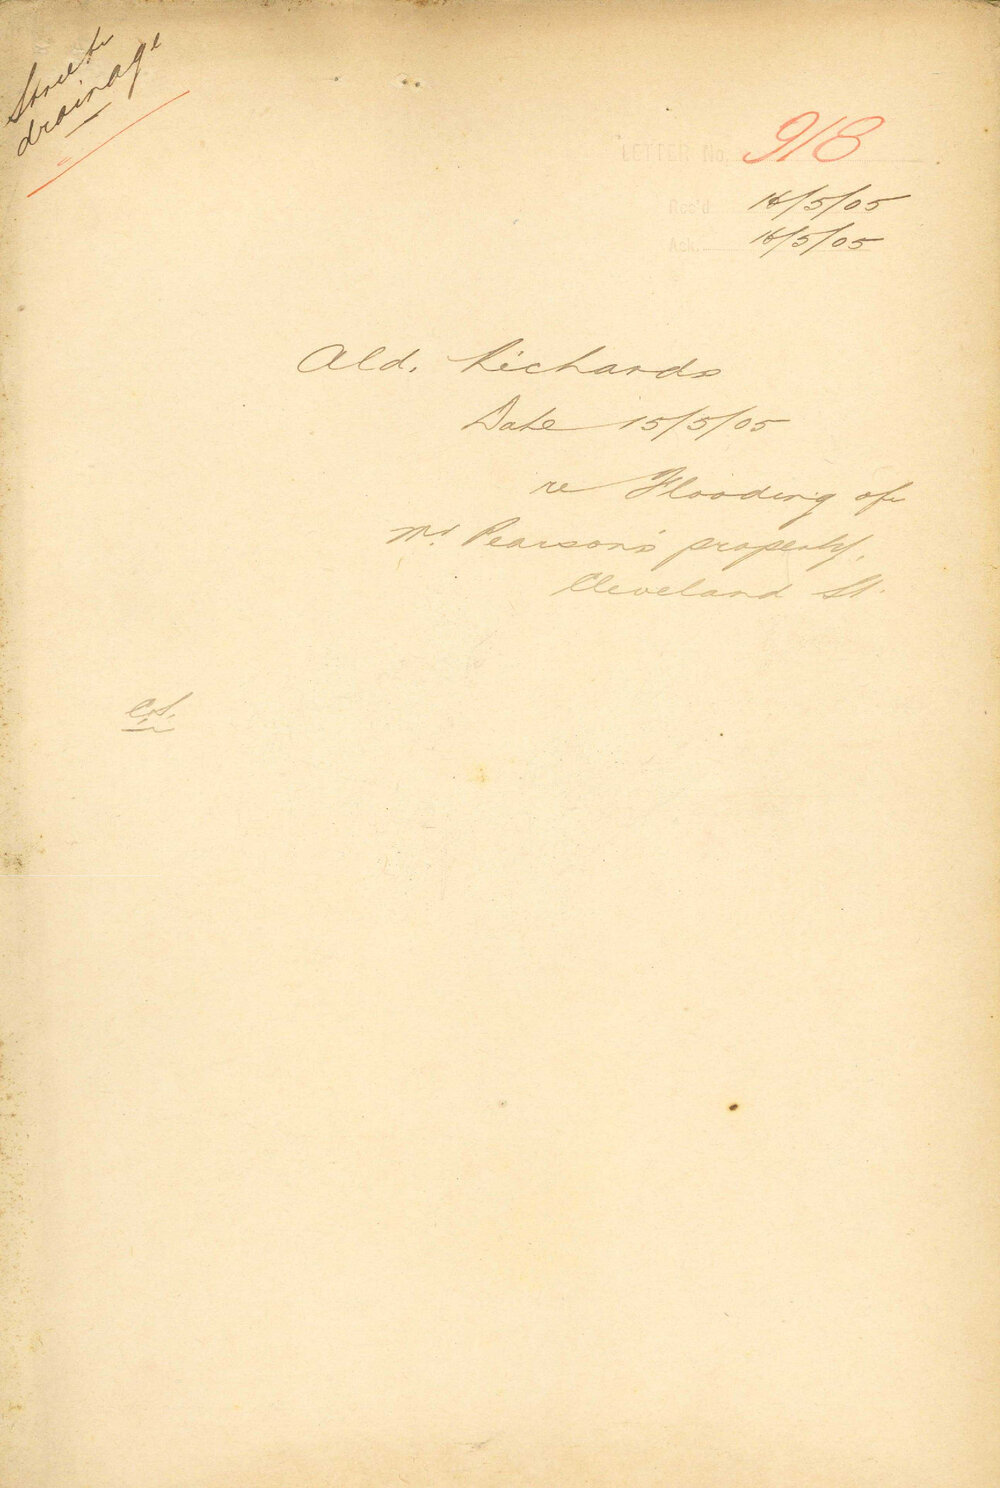 Street
drainage
LETTER No. 918
Rec'd 16/5/05
Ack. 16/5/05
Ald. Richards
Date 15/5/05
re Flooding of
Mr. Pearson's property,
Cleveland St.